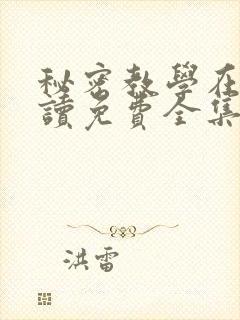 秘密教學在
讀免費全集
洪雷